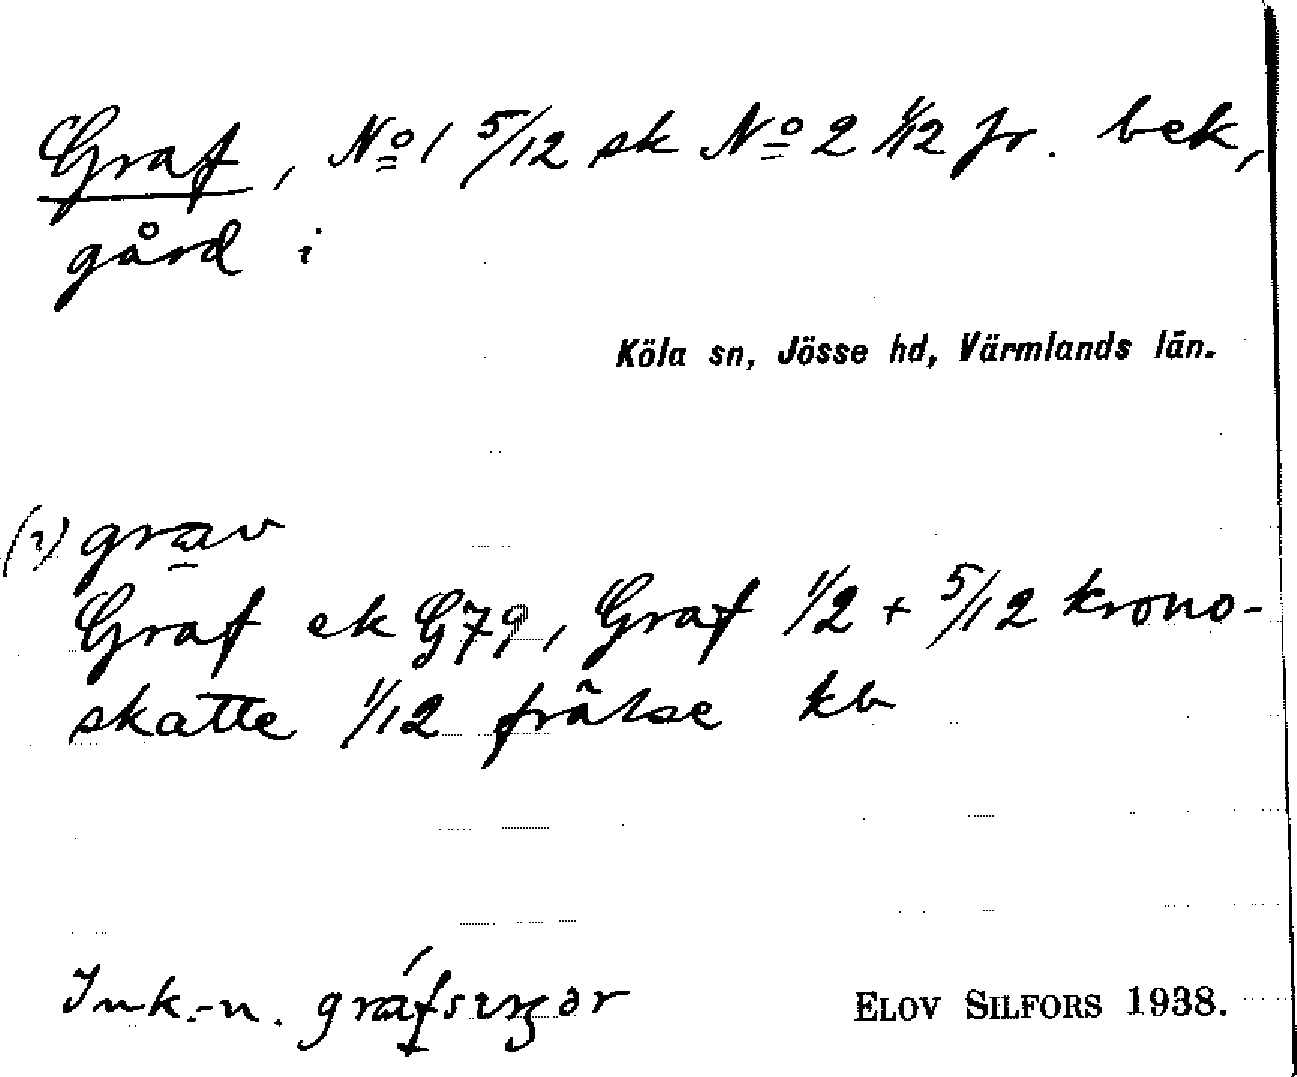 Graf, No 1 5/12 sk No 2 1/12 fr. bek,
gård i
Köla sn, Jösse hd, Värmlands län.
(?) grav
Graf ek G79, Graf 1/2 + 5/12 krono-
skatte 1/12 frälse kb
Ink.-n.
ELOV SILFORS 1938.